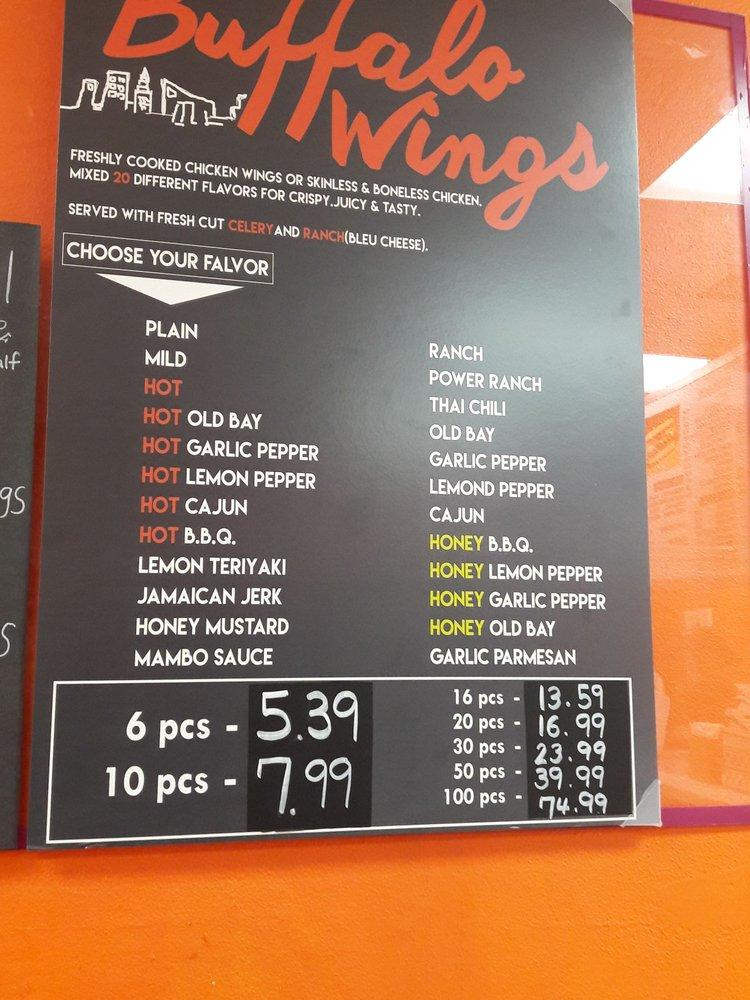 Buffalo
Wings
FRESHLY COOKED CHICKEN WINGS OR SKINLESS & BONELESS CHICKEN.
MIXED 20 DIFFERENT FLAVORS FOR CRISPY.JUICY & TASTY.
SERVED WITH FRESH CUT CELERY AND RANCH(BLEU CHEESE).
CHOOSE YOUR FALVOR
PLAIN
MILD
HOT
HOT OLD BAY
HOT GARLIC PEPPER
HOT LEMON PEPPER
HOT CAJUN
HOT B.B.Q.
LEMON TERIYAKI
JAMAICAN JERK
HONEY MUSTARD
MAMBO SAUCE
RANCH
POWER RANCH
THAI CHILI
OLD BAY
GARLIC PEPPER
LEMOND PEPPER
CAJUN
HONEY B.B.Q.
HONEY LEMON PEPPER
HONEY GARLIC PEPPER
HONEY OLD BAY
GARLIC PARMESAN
6 pcs - 5.39
10 pcs - 7.99
16 pcs - 13.59
20 pcs - 16.99
30 pcs - 23.99
50 pcs - 39.99
100 pcs - 74.99